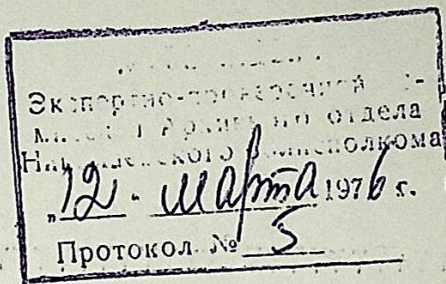 Экспертно-проверочной
Архивного отдела
Николаевского облисполкома
"12" марта 1976 г.
Протокол № 5